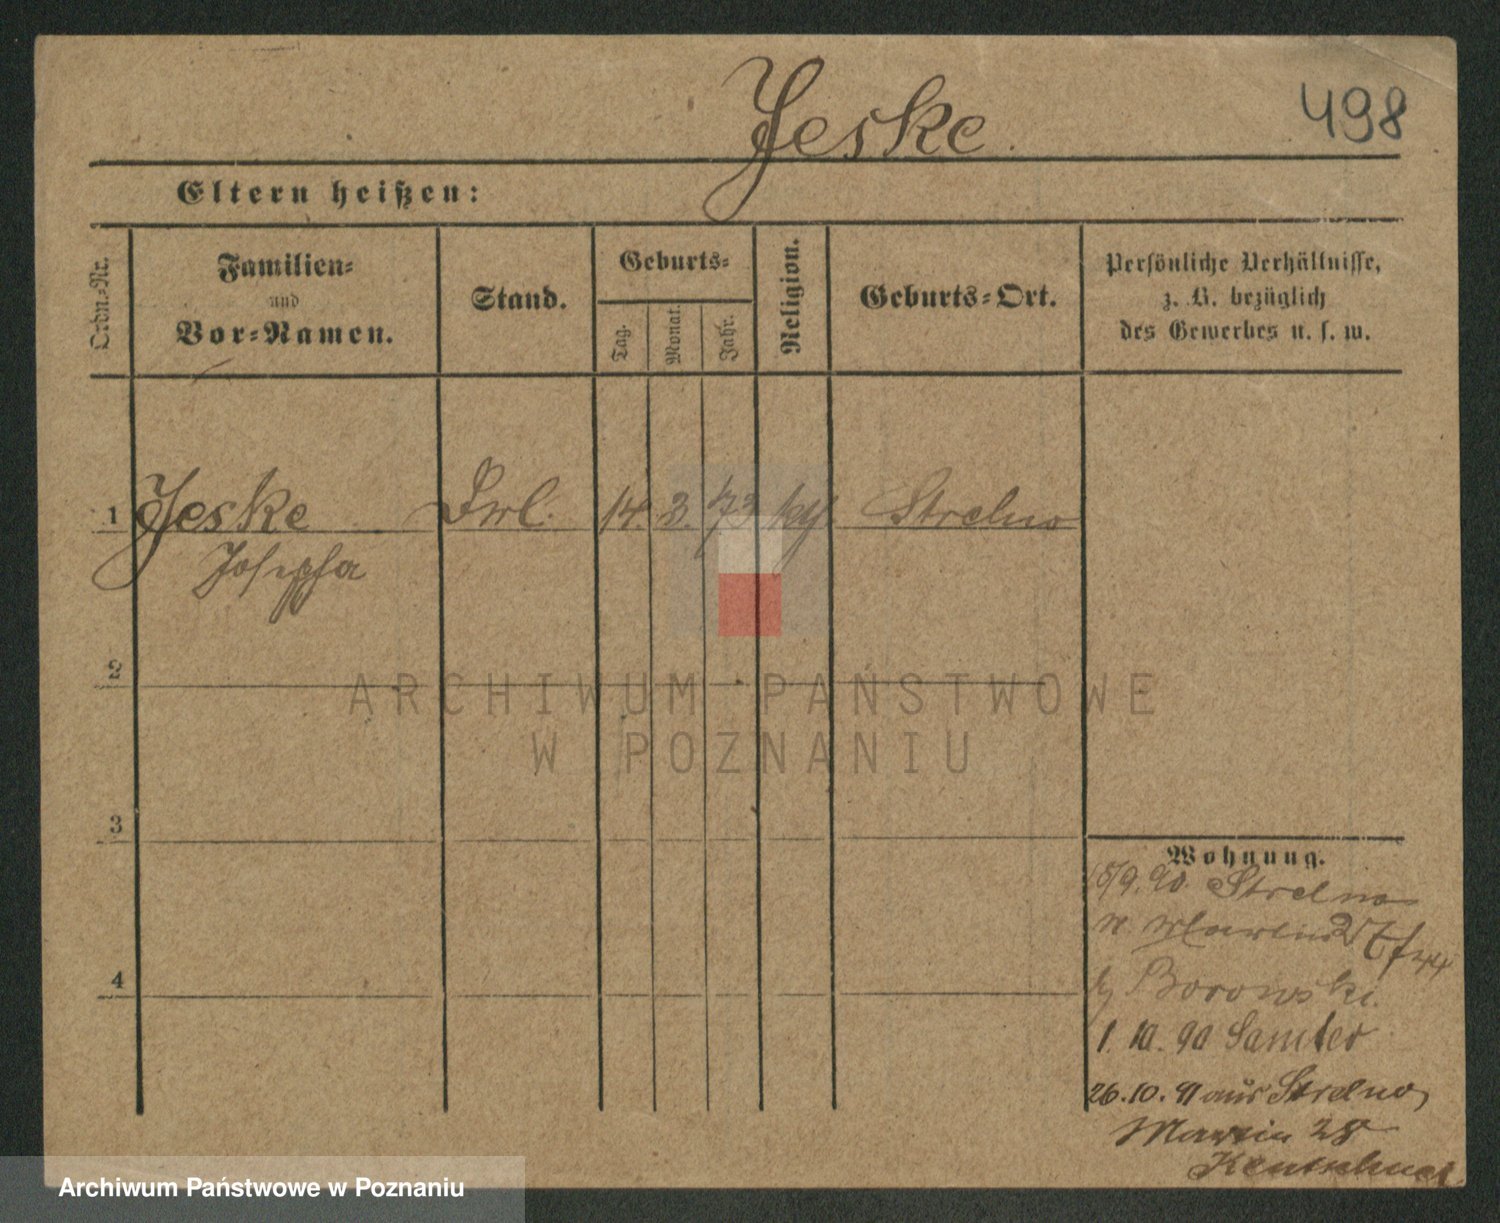 Jeske
498
Eltern heißen:
Ordn.-Nr.
Familien-
und
Vor-Namen.
Stand.
Geburts-
Tag.
Monat.
Jahr.
Religion.
Geburts-Ort.
Persönliche Verhältnisse,
z. B. bezüglich
des Gewerbes u. s. w.
1 Jeske Frl. 14 3. 73 kg. Strelno
Josepha
2
3
4
Wohnung.
15/9. 90. Strelno
n. Martin
Borowski.
1. 10. 90 Samter
26. 10. 91 aus Strelno,
Martin 28
ARCHIWUM PAŃSTWOWE
W POZNANIU
Archiwum Państwowe w Poznaniu